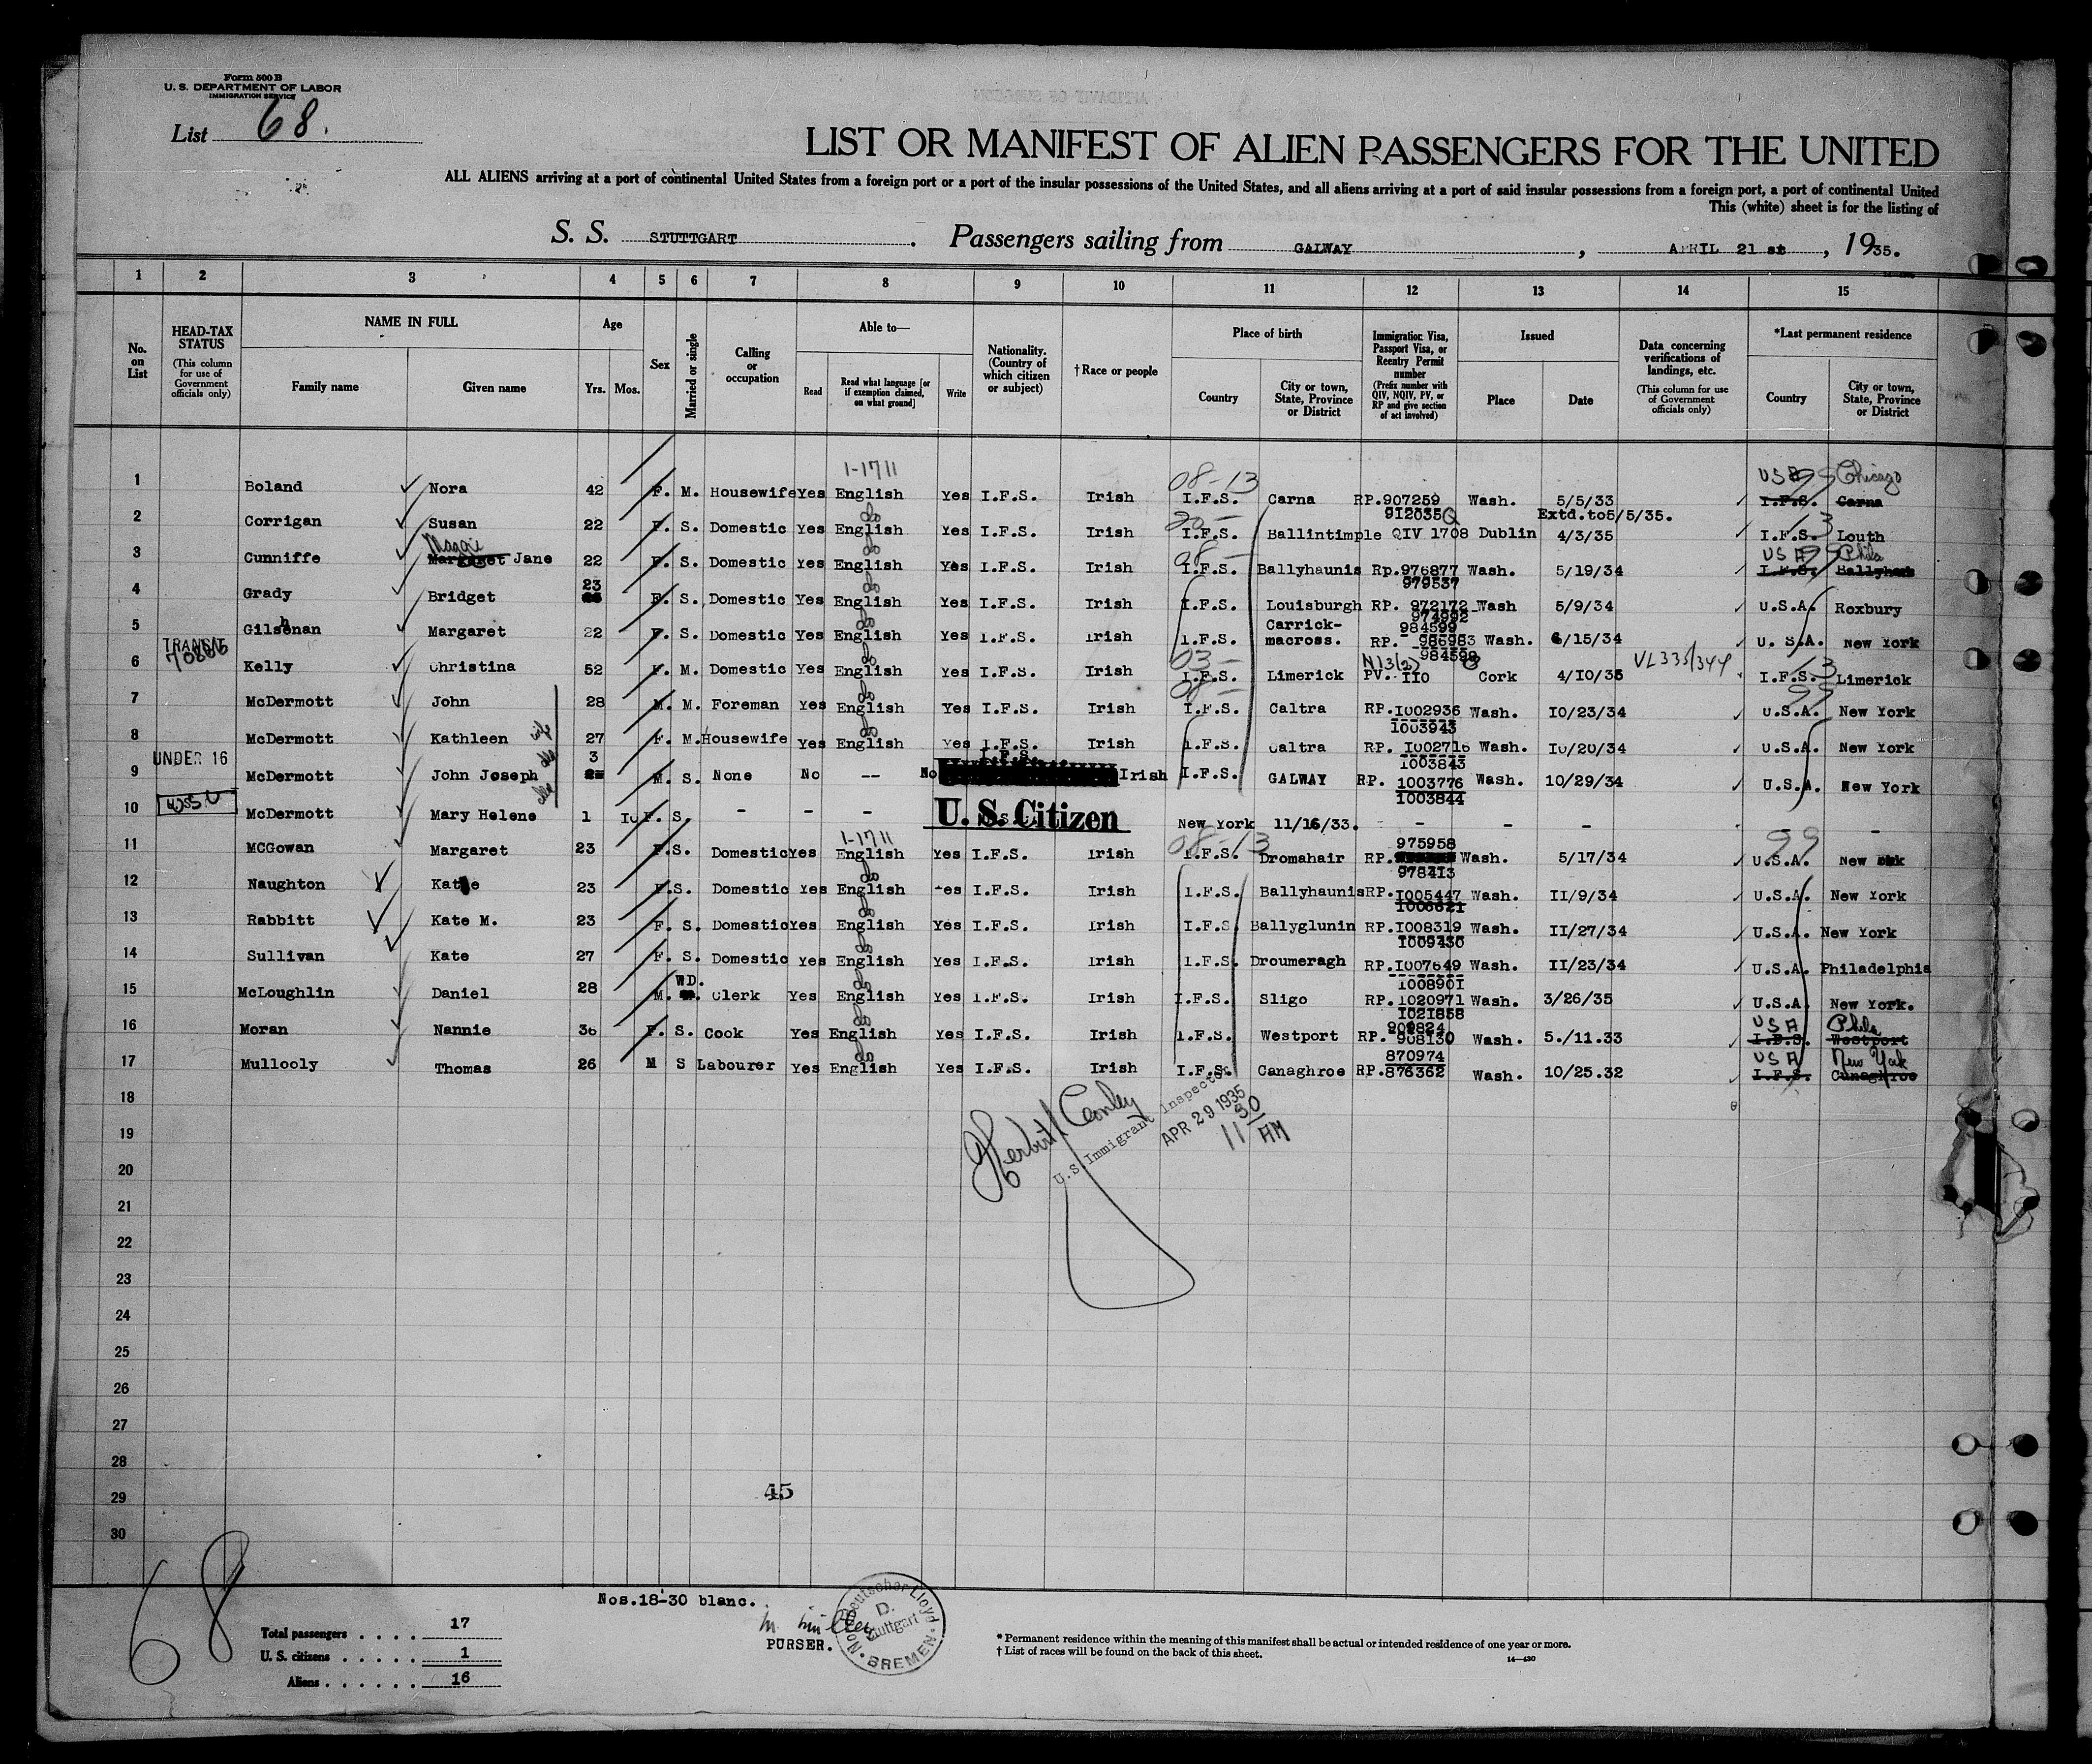 Form 500 B
U. S. DEPARTMENT OF LABOR
IMMIGRATION SERVICE
List 68.
LIST OR MANIFEST OF ALIEN PASSENGERS FOR THE UNITED
ALL ALIENS arriving at a port of continental United States from a foreign port or a port of the insular possessions of the United States, and all aliens arriving at a port of said insular possessions from a foreign port, a port of continental United
This (white) sheet is for the listing of
S. S. STUTTGART. Passengers sailing from GALWAY, APRIL 21 st, 1935.
1 2 3 4 5 6 7 8 9 10 11 12 13 14 15
No. on List
HEAD-TAX STATUS
(This column for use of Government officials only)
NAME IN FULL
Family name Given name
Age
Yrs. Mos.
Sex
Married or single
Calling or occupation
Able to—
Read Read what language [or if exemption claimed, on what ground] Write
Nationality. (Country of which citizen or subject)
†Race or people
Place of birth
Country City or town, State, Province or District
Immigration Visa, Passport Visa, or Reentry Permit number
(Prefix number with QIV, NQIV, PV, or RP and give section of act involved)
Issued
Place Date
Data concerning verifications of landings, etc.
(This column for use of Government officials only)
*Last permanent residence
Country City or town, State, Province or District
1-1711 08-13 USA 99 Chicago
1 Boland Nora 42 F. M. Housewife Yes English Yes I.F.S. Irish I.F.S. Carna RP.907259 Wash. 5/5/33 I.F.S. Carna
912035 Extd.to5/5/35.
2 Corrigan Susan 22 F. S. Domestic Yes English Yes I.F.S. Irish I.F.S. Ballintimple QIV 1708 Dublin 4/3/35 I.F.S. Louth
Maggie 08- USA 99 Phila
3 Cunniffe Margaret Jane 22 F. S. Domestic Yes English Yes I.F.S. Irish I.F.S. Ballyhaunis Rp.976877 Wash. 5/19/34 I.F.S.
23 979537
4 Grady Bridget F. S. Domestic Yes English Yes I.F.S. Irish I.F.S. Louisburgh RP. 972172 Wash 5/9/34 U.S.A. Roxbury
974992
h Carrick- 984599
5 Gilsenan Margaret 22 F. S. Domestic Yes English Yes I.F.S. Irish I.F.S. macross. RP. Wash. 6/15/34 U. S.A. New York
TRANSIT 03- 984599 VL335/344 13
6 Kelly Christina 52 F. M. Domestic Yes English Yes I.F.S. Irish I.F.S. Limerick PV. 110 Cork 4/10/35 I.F.S. Limerick
08- 99
7 McDermott John 28 M. M. Foreman Yes English Yes I.F.S. Irish I.F.S. Caltra RP.1002936 Wash. 10/23/34 U.S.A. New York
1003943
8 McDermott Kathleen wife 27 F. M. Housewife Yes English Yes I.F.S. Irish I.F.S. Caltra RP. 1002716 Wash. 10/20/34 U.S.A. New York
UNDER 16 3 I.F.S. 1003843
9 McDermott John Joseph M. S. None No -- No Irish I.F.S. GALWAY RP. 1003776 Wash. 10/29/34 U.S.A. New York
1003844
10 McDermott Mary Helene 1 10 F. S. - - - U. S. Citizen New York 11/16/33. - - - - -
1-1711 08-13 975958 99
11 MCGowan Margaret 23 F.S. Domestic Yes English Yes I.F.S. Irish I.F.S. Dromahair RP. Wash. 5/17/34 U.S.A. New
978413
12 Naughton Katie 23 F.S. Domestic Yes English Yes I.F.S. Irish I.F.S. Ballyhaunis RP.1005447 Wash. 11/9/34 U.S.A. New York
1006621
13 Rabbitt Kate M. 23 F. S. Domestic Yes English Yes I.F.S. Irish I.F.S. Ballyglunin RP.1008319 Wash. 11/27/34 U.S.A. New York
1009430
14 Sullivan Kate 27 F. S. Domestic Yes English Yes I.F.S. Irish I.F.S. Droumeragh RP.1007649 Wash. 11/23/34 U.S.A. Philadelphia
WD. 1008901
15 McLoughlin Daniel 28 M. Clerk Yes English Yes I.F.S. Irish I.F.S. Sligo RP.1020971 Wash. 3/26/35 U.S.A. New York.
1021858
909824 USA Phila
16 Moran Nannie 36 F. S. Cook Yes English Yes I.F.S. Irish I.F.S. Westport RP. 908130 Wash. 5./11.33 I.F.S. Westport
870974 USA New York
17 Mullooly Thomas 26 M S Labourer Yes English Yes I.F.S. Irish I.F.S. Canaghroe RP.876362 Wash. 10/25.32 I.F.S. Canaghroe
18
19
20
21
22
23
24
25
26
27
28
29
30
U.S. Immigrant Inspector
APR 29 1935
11 30 AM
45
68
Nos.18-30 blanc.
PURSER.
Norddeutscher Lloyd
D. Stuttgart
BREMEN
Total passengers 17
U. S. citizens 1
Aliens 16
* Permanent residence within the meaning of this manifest shall be actual or intended residence of one year or more.
† List of races will be found on the back of this sheet.
14—430